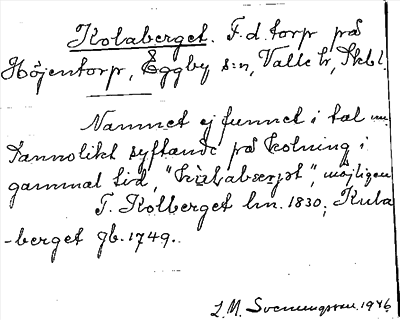 Kolaberget. F.d. torp på
Höjentorp, Eggby s:n, Valle hr, Skbl.
Namnet ej funnet i tal m.
Sannolikt syftande på kolning i
gammal tid, "
", möjligen
T. Kolberget hn. 1830; Kula
-berget gb. 1749.
L. M. Svenungsson. 1946